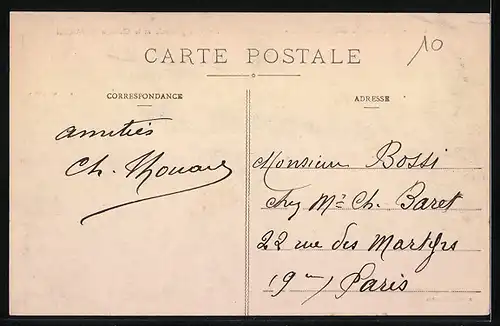 10
CARTE POSTALE
CORRESPONDANCE
ADRESSE
amitiés
Ch.
Monsieur Bossi
Chez Mr Ch. Baret
22 rue des Martyrs
(9me) Paris